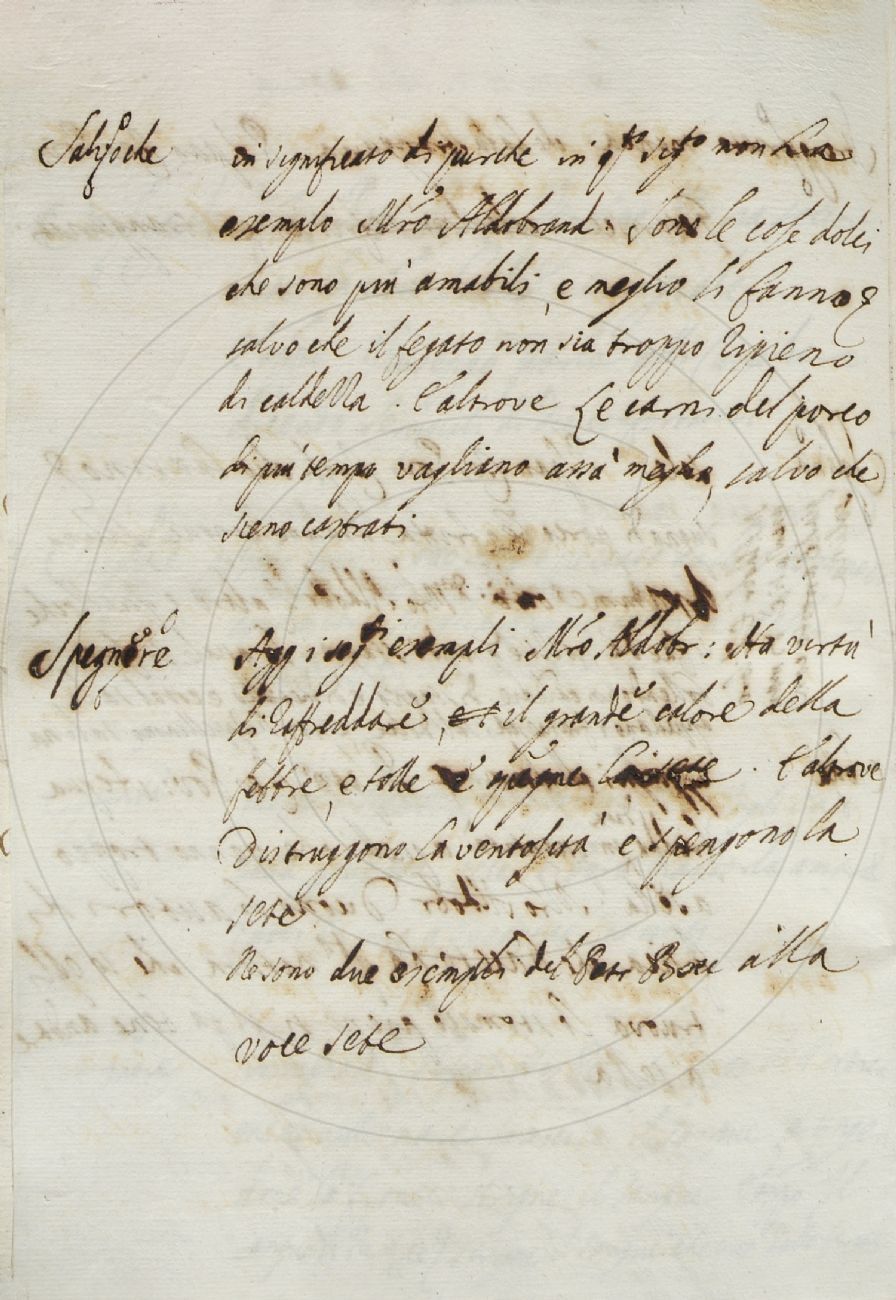 Salvoche in significato di purche in q.to sig.to non ha
exemplo Mro Aldobrand. Sono le cose dolci
che sono più amabili e meglio si fanno
salvo che il fegato non sia troppo ripieno
di caldezza. E altrove Le carni del porco
di più tempo vagliono assa' meglio, salvo che
sieno castrati
Spegnere Agg i seg.ti exempli Mro Aldobr: Ha virtù
di raffreddare, il grande calore della
febbre, e tolle e spegne la sete. E altrove
Distruggono la ventosità e spengono la
sete
Ne sono due esempli del Petr Bocc alla
voce sete